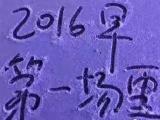 2016早
第一场雪